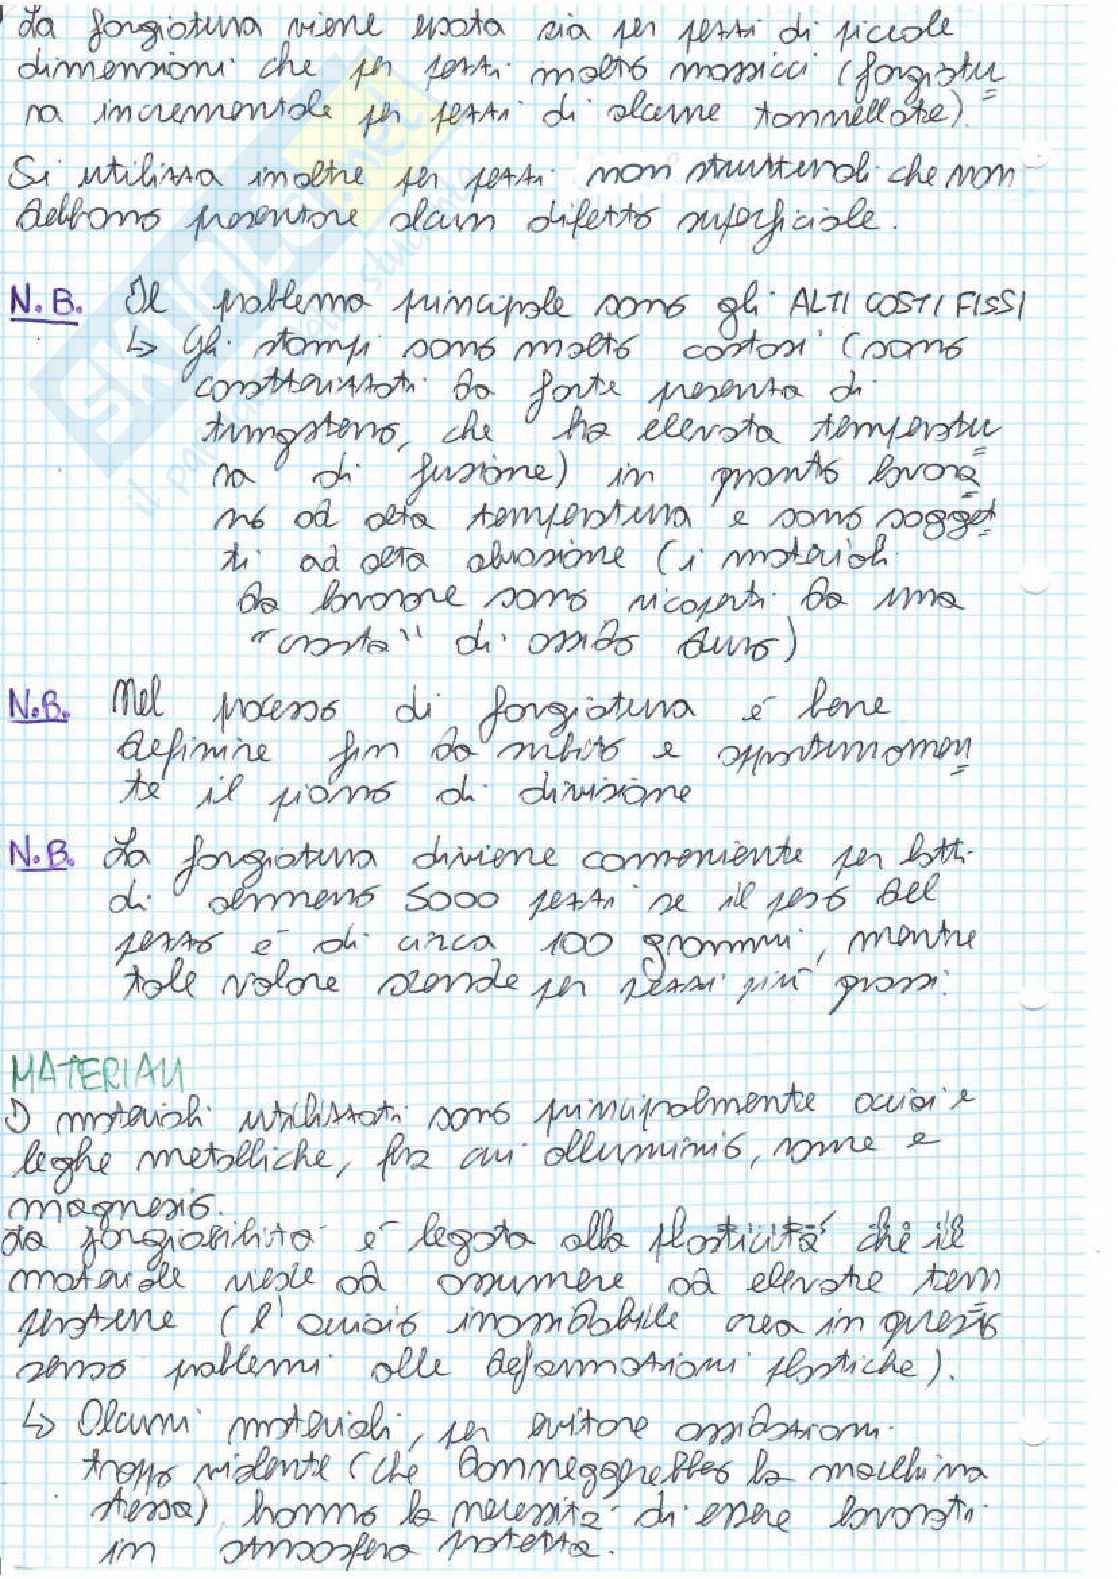 La forgiatura viene usata sia per pezzi di piccole
dimensioni che per pezzi molto massicci (forgiatu
ra incrementale per pezzi di alcune tonnellate).
Si utilizza inoltre per pezzi non strutturali che non
debbono presentare alcun difetto superficiale.
N.B. Il problema principale sono gli ALTI COSTI FISSI
↳ Gli stampi sono molto costosi (sono
caratterizzati da forte presenza di
tungsteno, che ha elevata temperatu
ra di fusione) in quanto lavora
no ad alta temperatura e sono sogget
ti ad alta abrasione (i materiali
da lavorare sono ricoperti da una
"crosta" di ossido duro)
N.B. Nel processo di forgiatura è bene
definire fin da subito e opportunamen
te il piano di divisione
N.B. La forgiatura diviene conveniente per lotti
di almeno 5000 pezzi se il peso del
pezzo è di circa 100 grammi, mentre
tale valore scende per pezzi più grossi.
MATERIALI
I materiali utilizzati sono principalmente acciai e
leghe metalliche, fra cui alluminio, rame e
magnesio.
La forgiabilità è legata alla plasticità che il
materiale riesce ad assumere ad elevate tem
perature (l'acciaio inossidabile crea in questo
senso problemi alle deformazioni plastiche).
↳ Alcuni materiali, per evitare ossidazioni
troppo violente (che danneggerebbero la macchina
stessa) hanno la necessità di essere lavorati
in atmosfera protetta.
SKUOLA.net